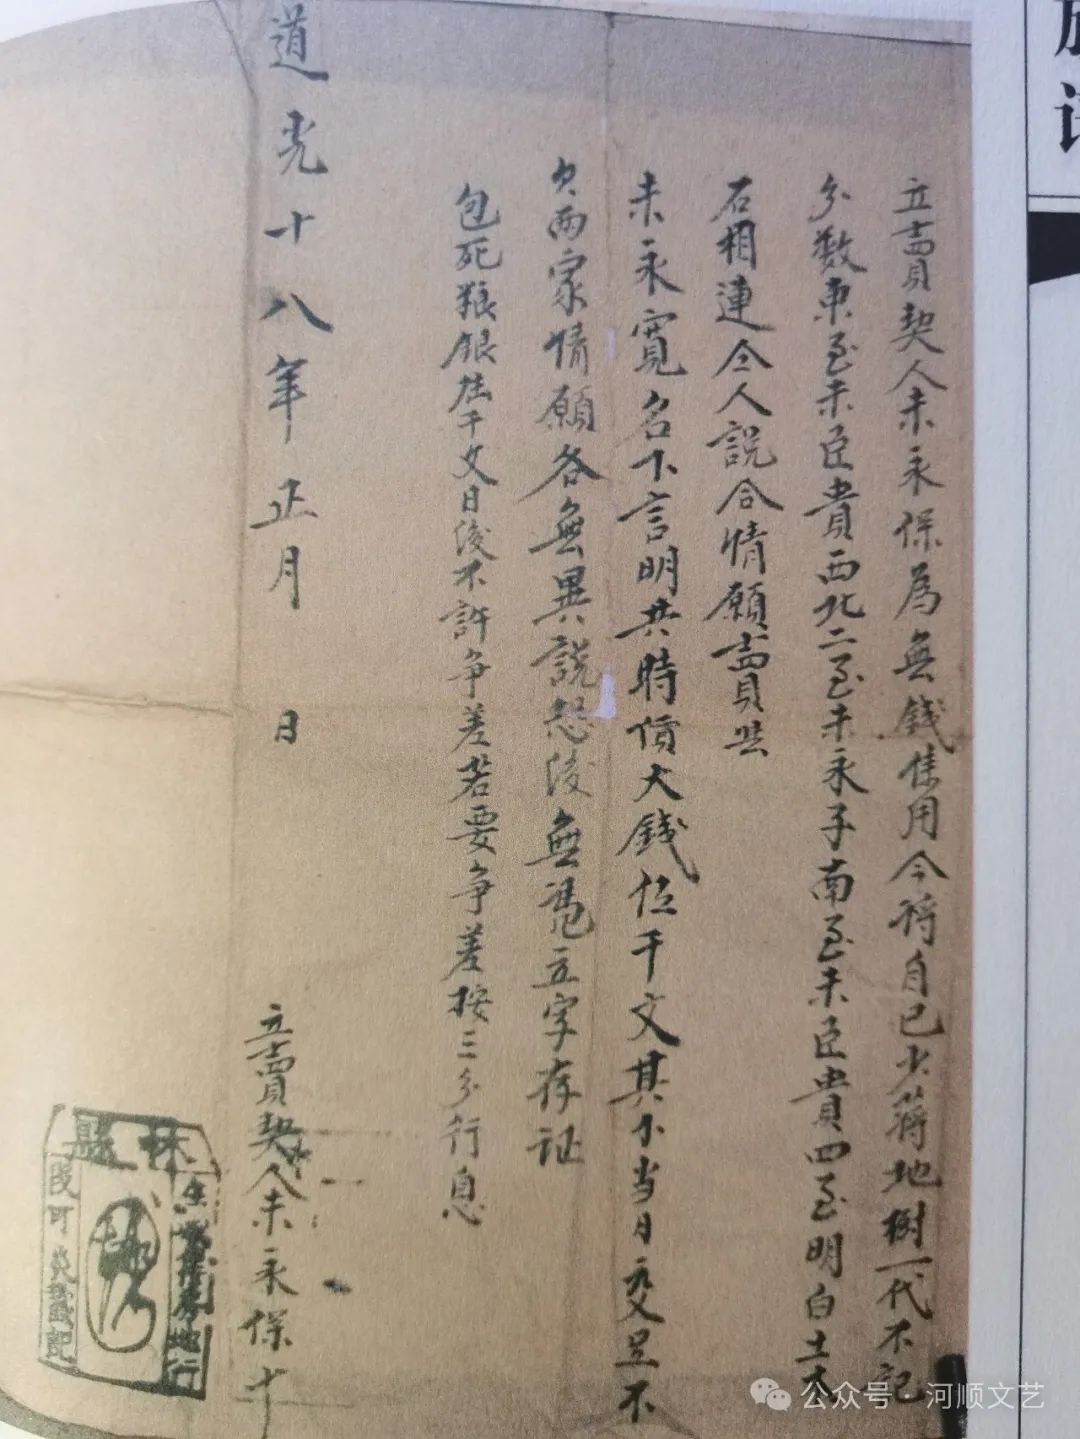 立賣契人未永保為無錢使用今将自己大蒋地樹一代不記
分数東至未臣貴西北二至未永子南至未臣貴四至明白土木
石相連仝人說合情願賣與
未永寬名下言明共時價大錢伍千文其不当日交足不
欠兩家情願各無異說恐後無凴立字存证
包死粮銀在千文日後不許争差若要争差按三分行息
道光十八年正月 日
立賣契人未永保十
林縣
段可炎戳記
公众号·河顺文艺